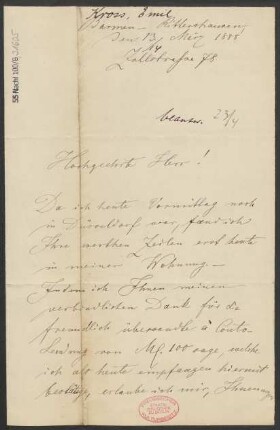 Kross, Emil
Barmen – Rittershausen
den 13 März 1888
Zollstrasse 78
beantw. 23/4
Hochgeehrt Herr!
Da ich heute Vormittag noch
in Düsseldorf war, fand ich
Ihre werthen Zeilen erst heute
in meiner Wohnung –
Indem ich Ihnen meinen
verbindlichen Dank für die
freundlich übersandte à Conto
Sendung von M. 100 sage, welche
ich als heute empfangen hiermit
bestätige, erlaube ich mir, Ihnen